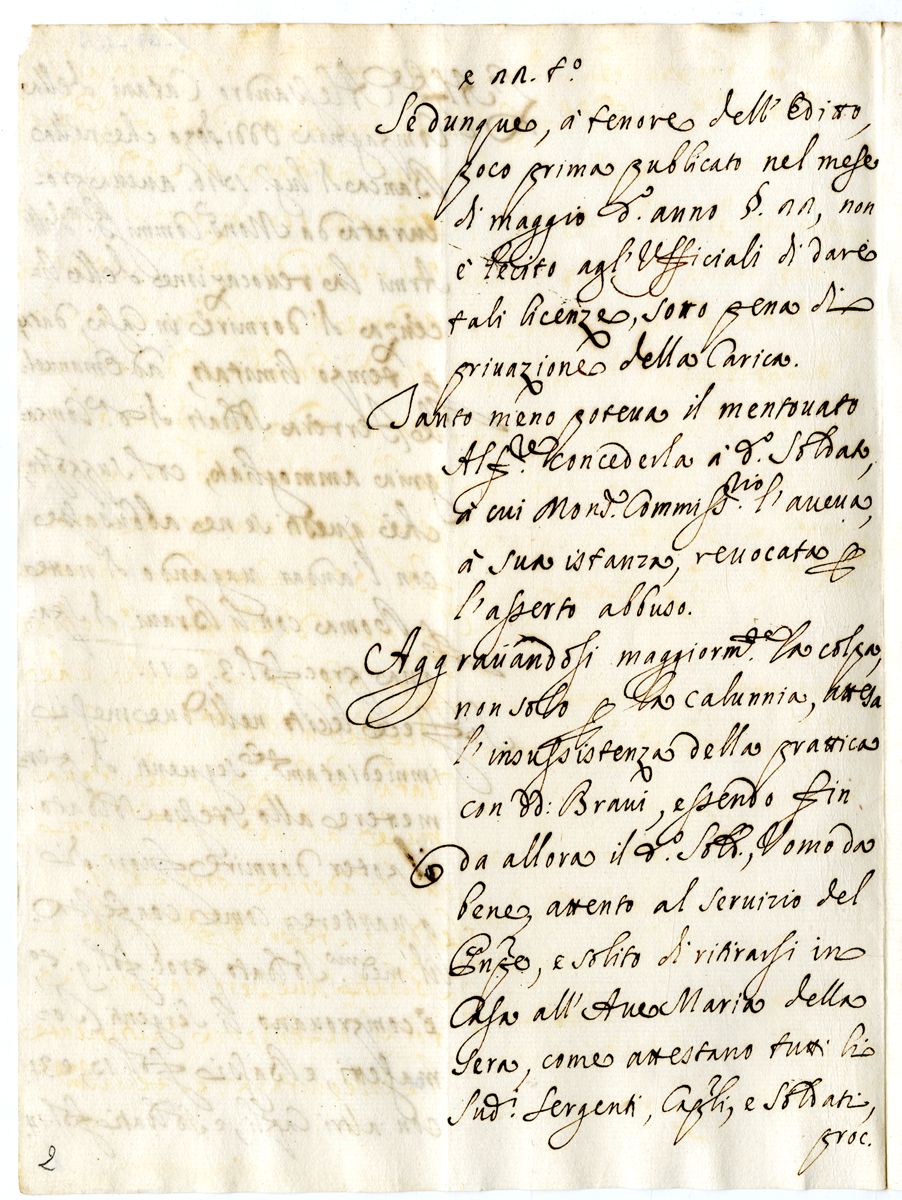 e 22. t.º
Se dunque, à tenore dell' Editto,
poco prima publicato nel mese
di maggio d.º anno §. 22, non
è lecito agl' Ufficiali di dare
tali licenze, sotto pena di
privazione della Carica.
Tanto meno poteva il mentovato
Alf.re concederla à d.º Soldat,
à cui Mons.r Commiss.rio l' aveva,
à sua istanza, revocata p
l' asserto abbuso.
Aggravandosi maggiorm.te la colpa,
non solo p la Calunnia, attesa
l' insussistenza della prattica
con dd: Bravi, essendo fin
da allora il d.º Sold., Uomo da
bene, attento al Servizio del
Pnpe, e solito di ritirarsi in
Casa all' Ave Maria della
Sera, come attestano tutti li
sud.i Sergenti, Capli, e Soldati,
proc.
2